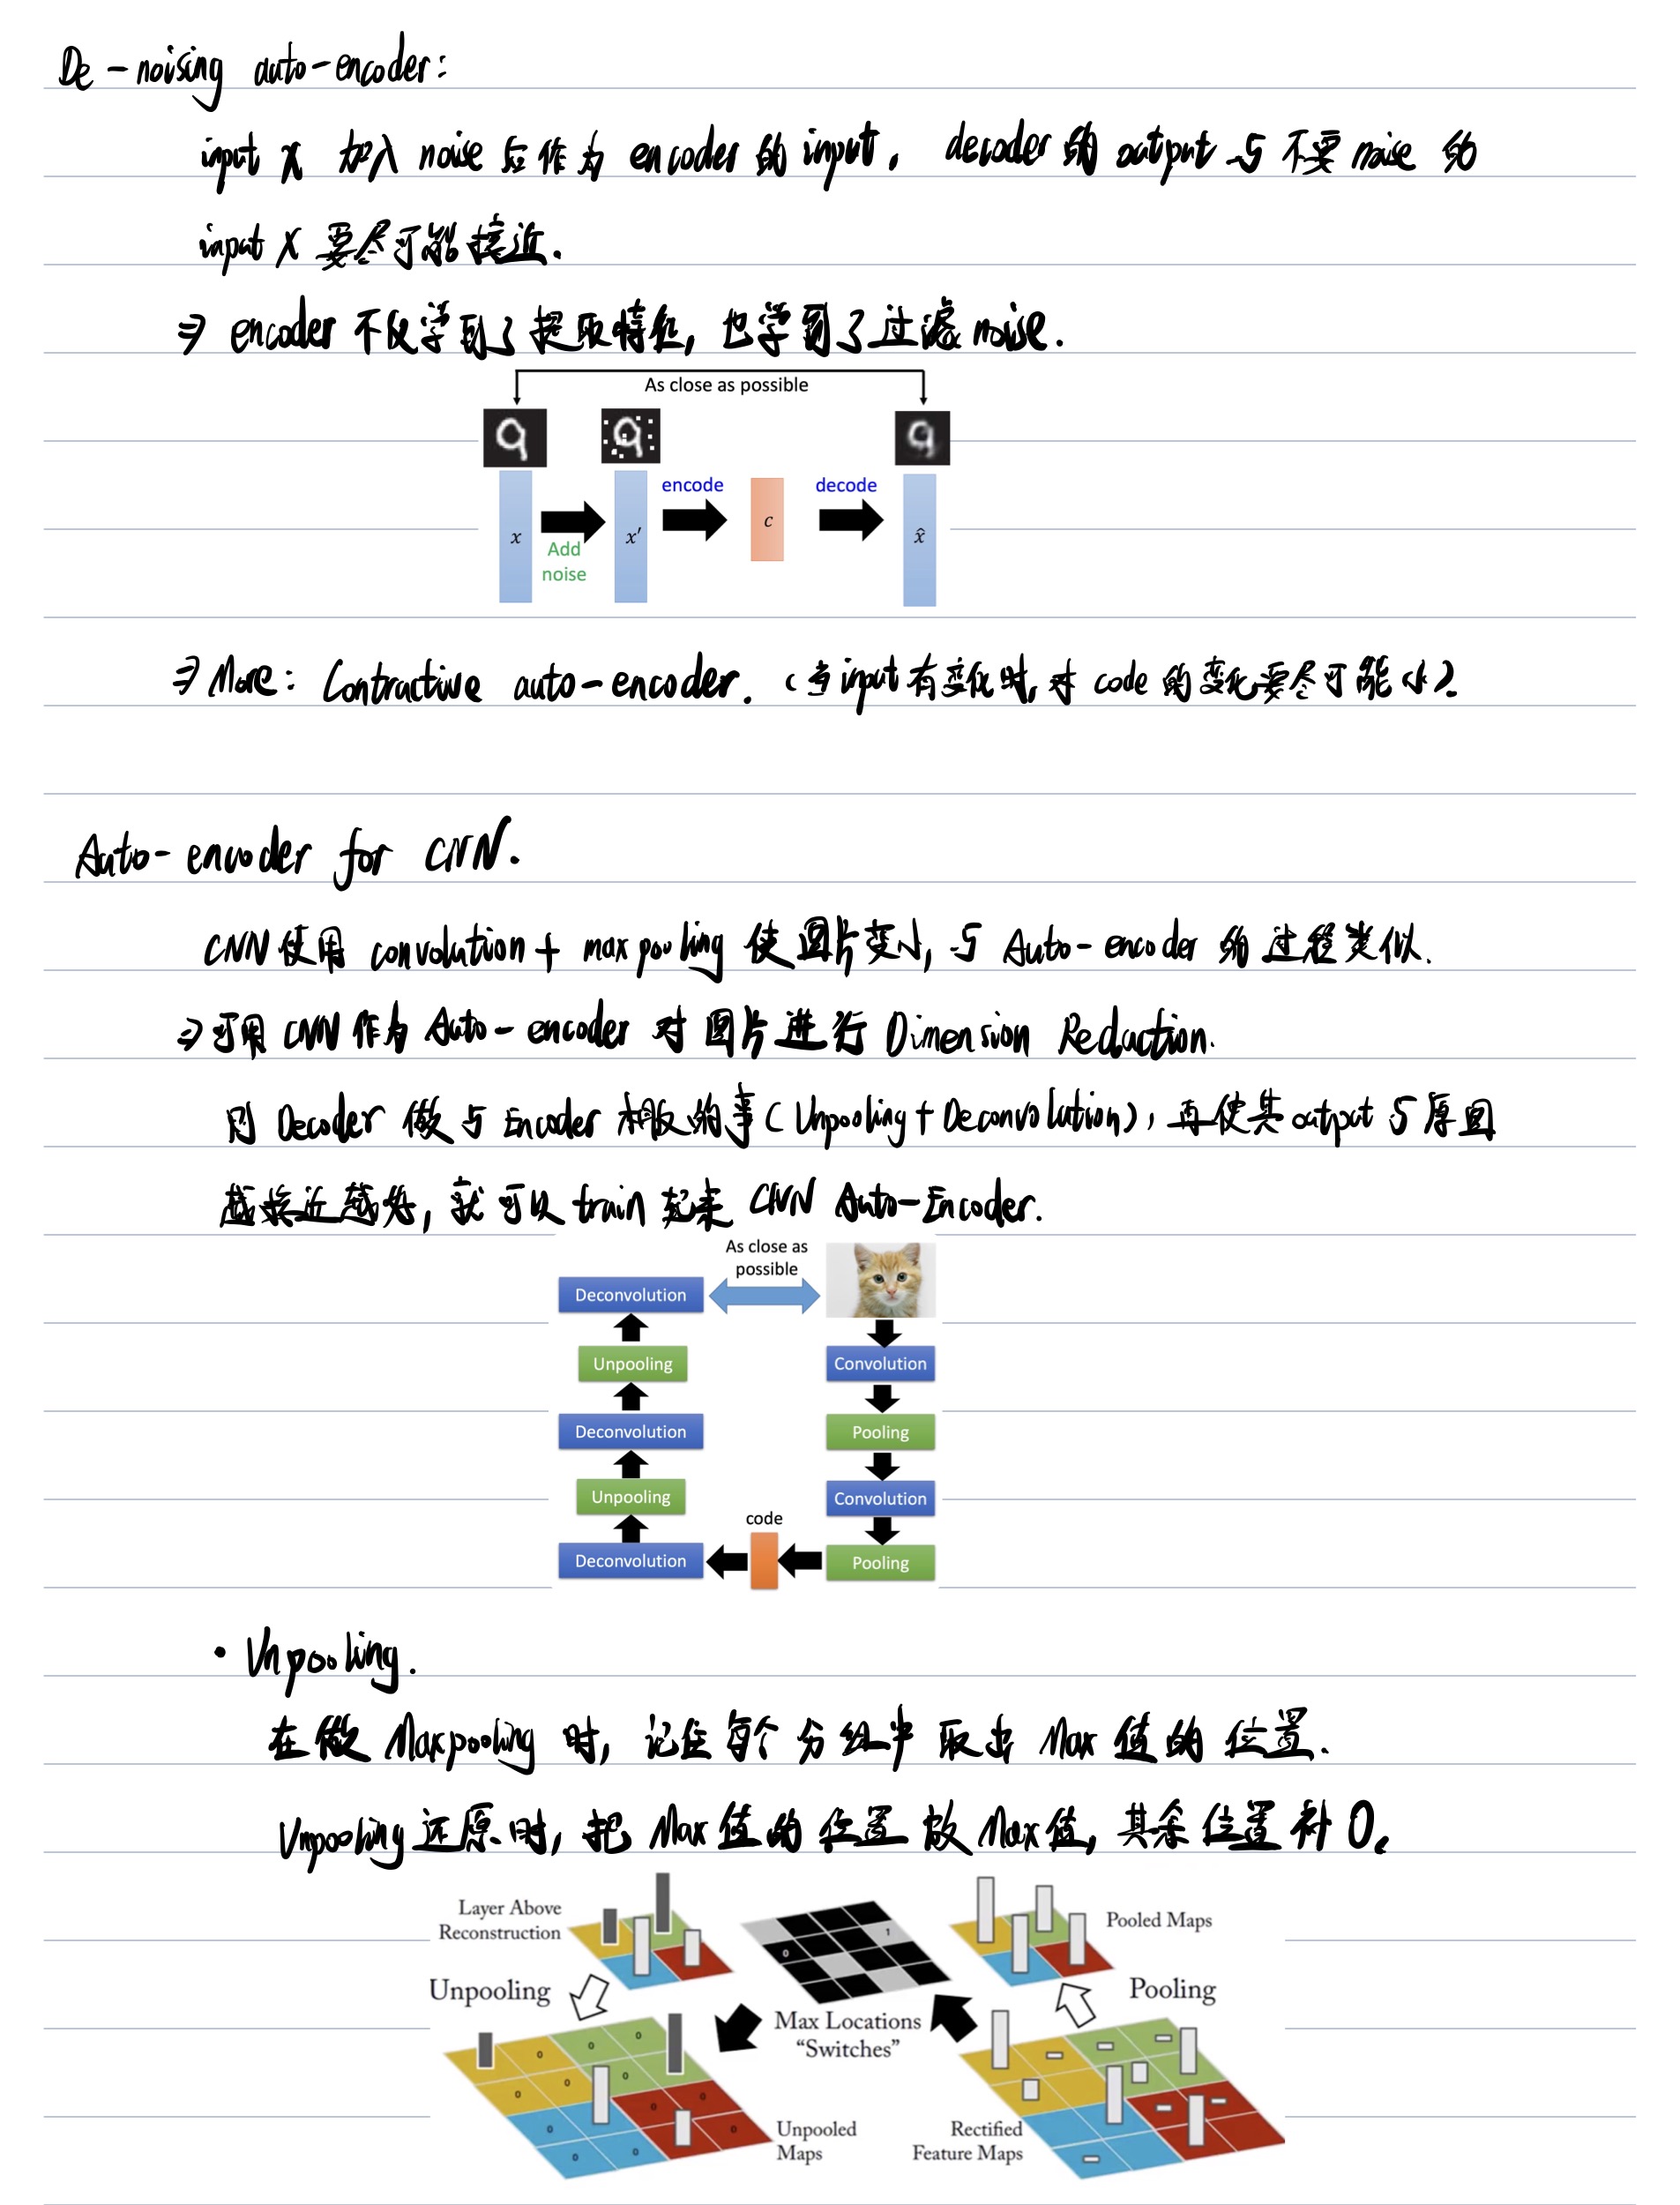 De-noising auto-encoder:
input x 加入 noise 后作为 encoder 的 input, decoder 的 output 与不要 noise 的
input x 要尽可能接近.
⇒ encoder 不仅学到了提取特征, 也学到了过滤 noise.
As close as possible
encode decode
x x′ c x̂
Add
noise
⇒ More: Contractive auto-encoder. (当 input 有变化时, 对 code 的变化要尽可能小).
Auto-encoder for CNN.
CNN 使用 convolution + maxpooling 使图片变小, 与 Auto-encoder 的过程类似.
⇒ 可用 CNN 作为 Auto-encoder 对图片进行 Dimension Reduction.
则 Decoder 做与 Encoder 相反的事 (Unpooling + Deconvolution), 再使其 output 与原图
越接近越好, 就可以 train 起来 CNN Auto-Encoder.
As close as
possible
Deconvolution
Unpooling Convolution
Deconvolution Pooling
Unpooling Convolution
code
Deconvolution Pooling
• Unpooling.
在做 Maxpooling 时, 记住每个分组中取出 Max 值的位置.
Unpooling 还原时, 把 Max 值的位置放 Max 值, 其余位置补 0.
Layer Above
Reconstruction
Pooled Maps
0 1
Unpooling Pooling
Max Locations
“Switches”
0 0 0
0 0 0
0 0
0 0
0 0
Unpooled
Maps
Rectified
Feature Maps